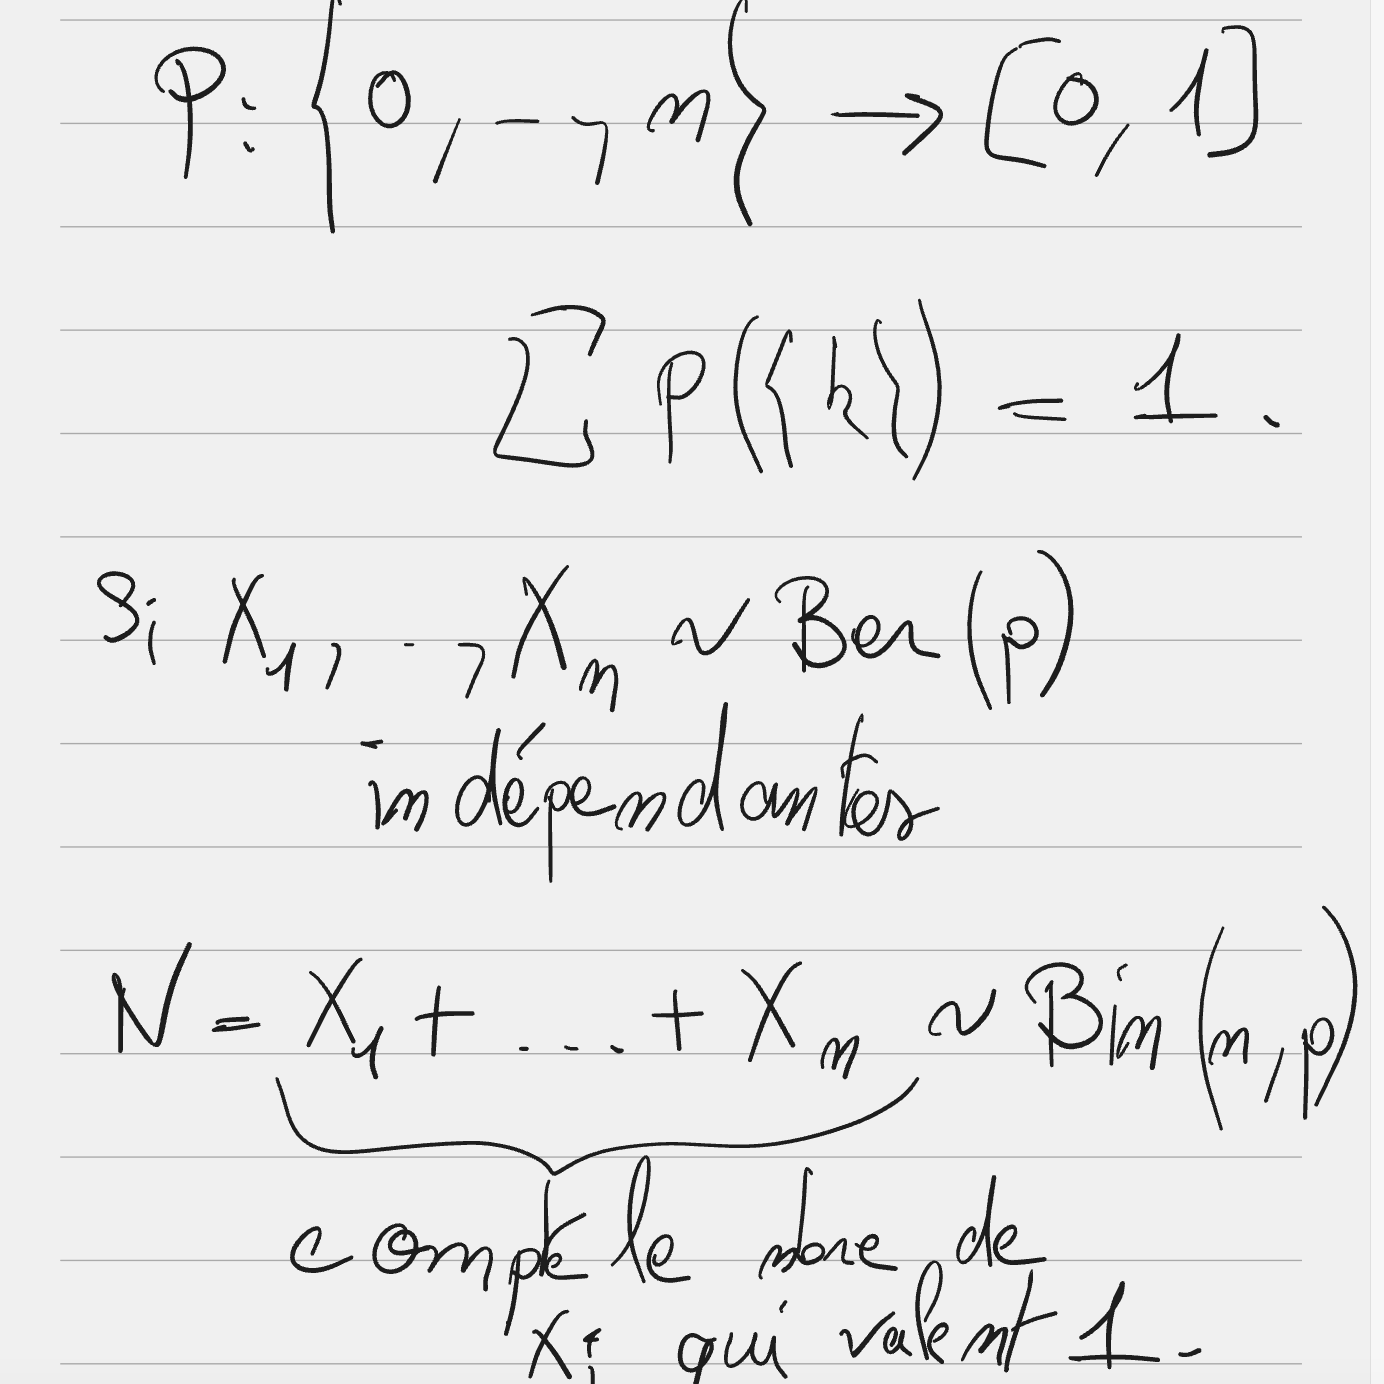 P: {0, - -, n} → [0, 1]
∑ P({k}) = 1.
Si X₁, - -, Xₙ ~ Ber(p)
indépendantes
N = X₁ + .... + Xₙ ~ Bin(n, p)
compte le nbre de
Xᵢ qui valent 1.